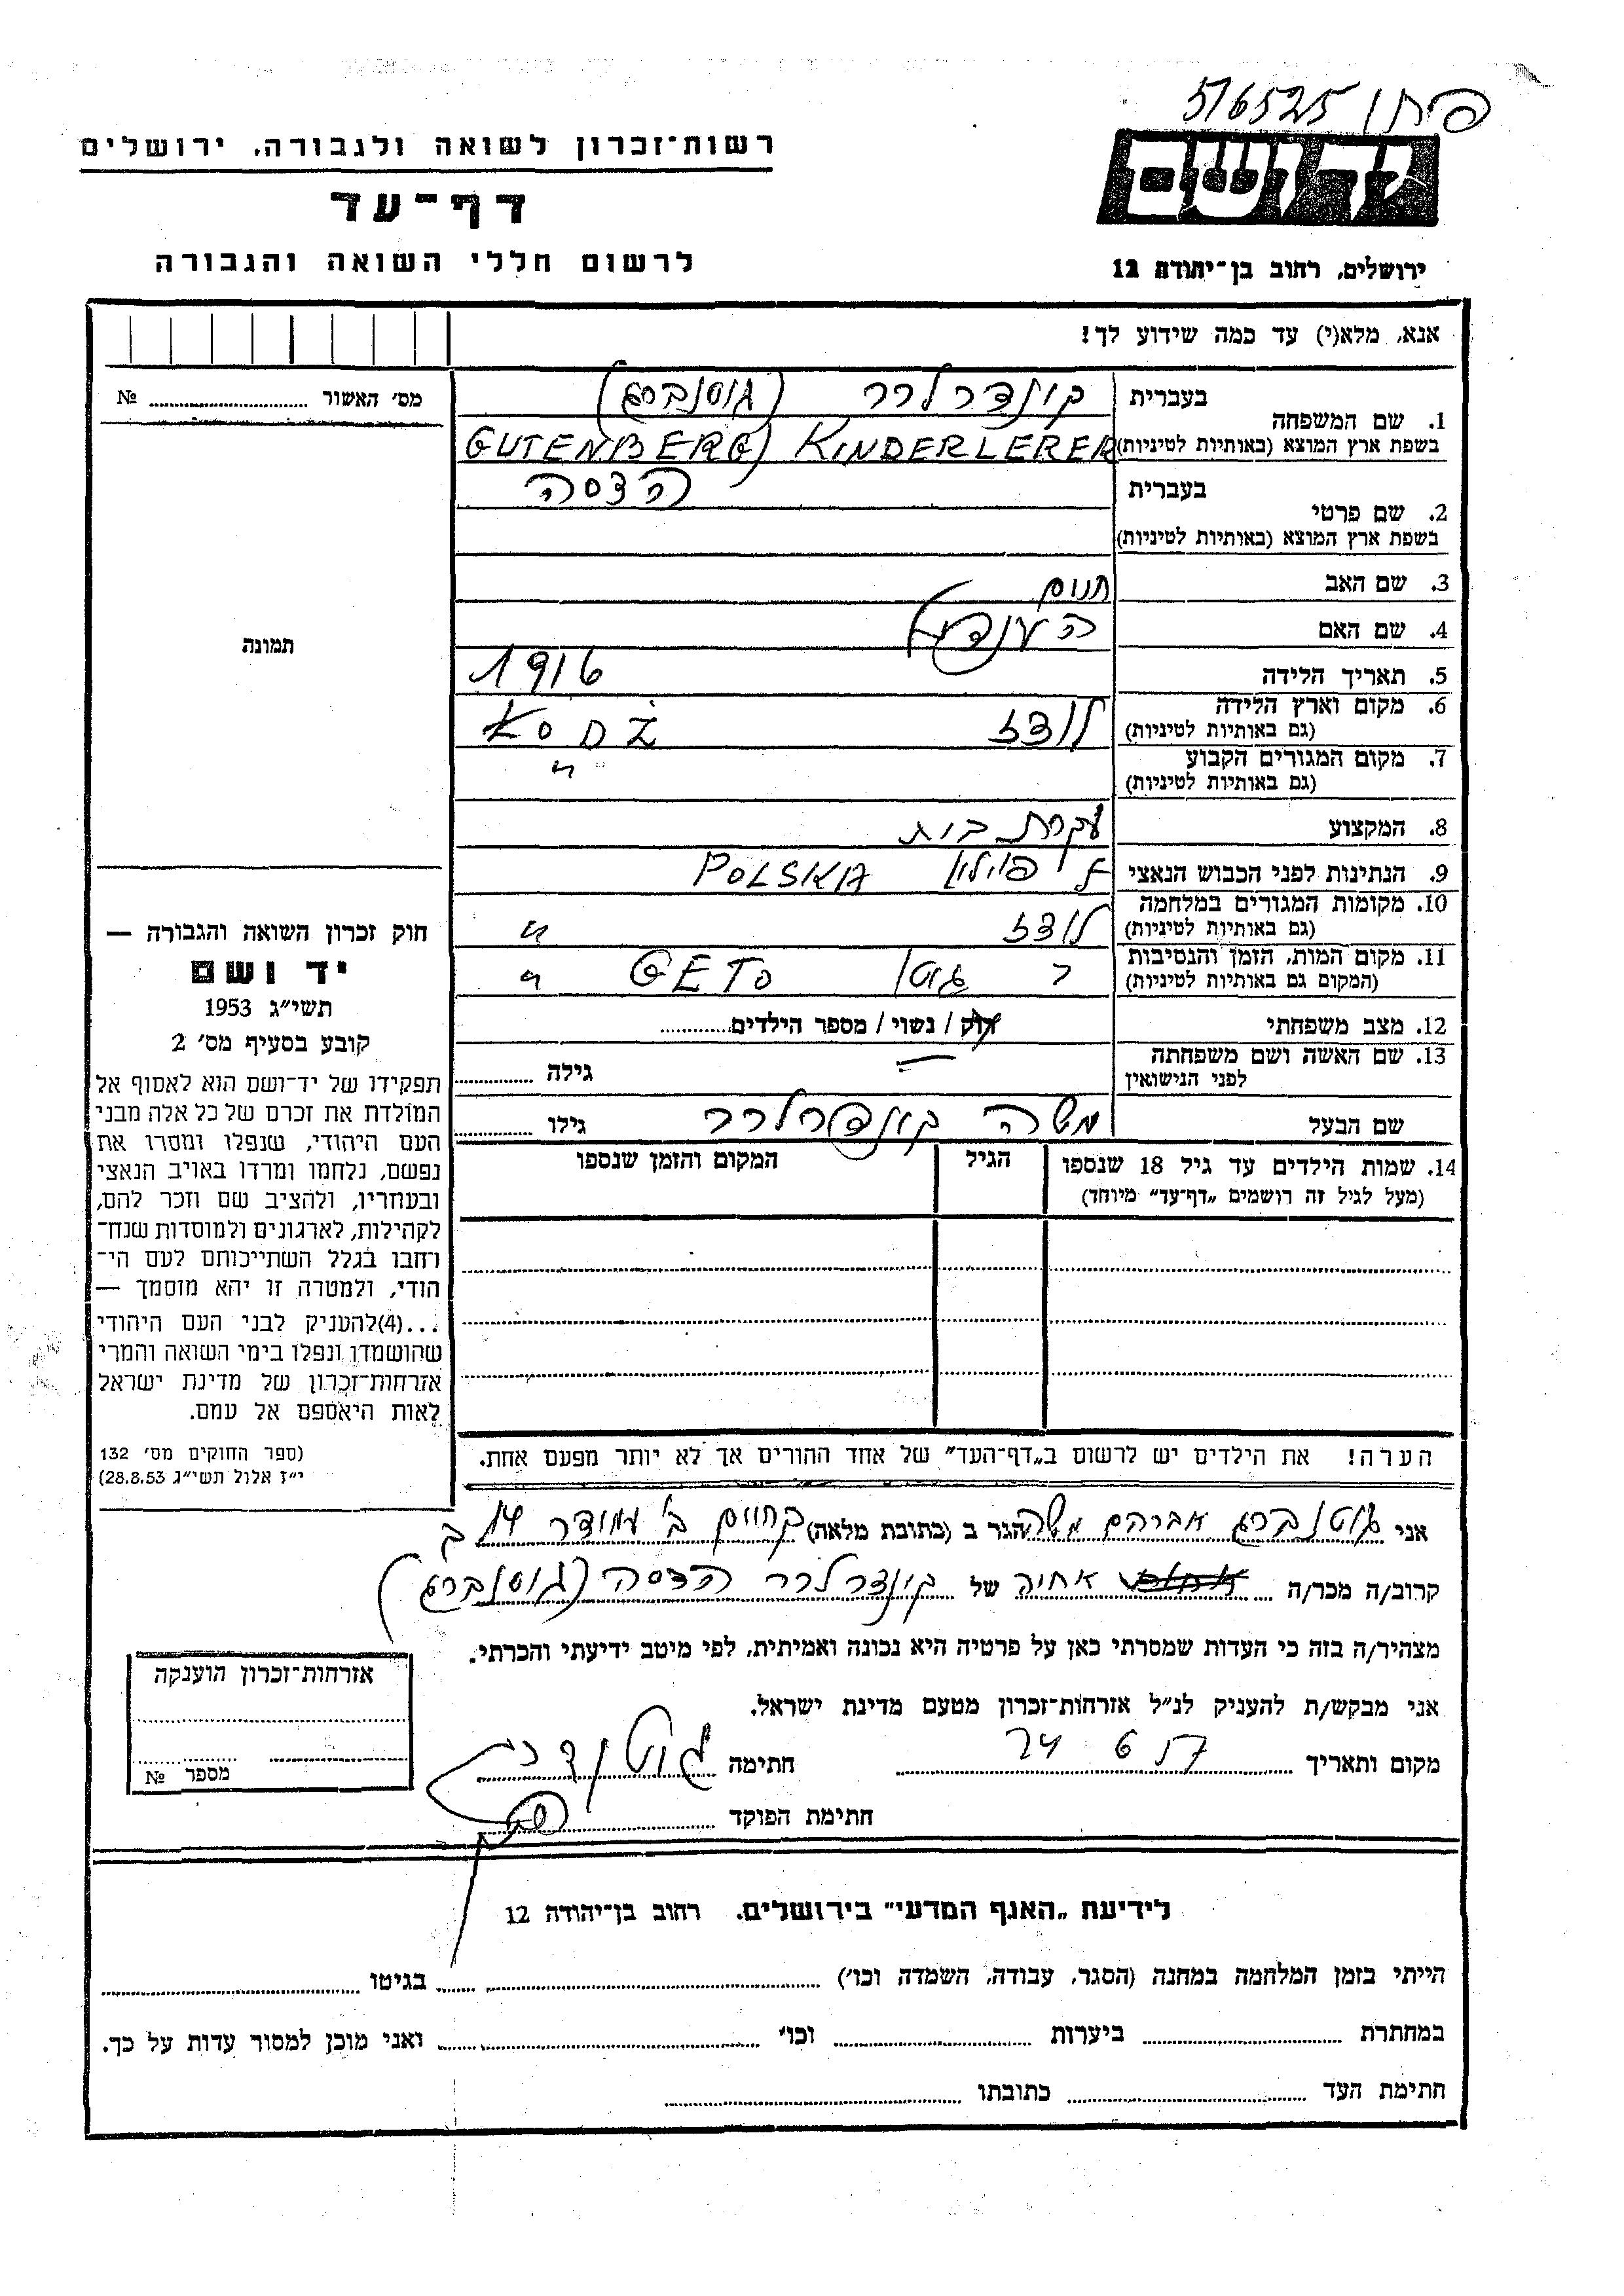 516525
יד ושם
ירושלים, רחוב בן־יהודה 12
רשות־זכרון לשואה ולגבורה, ירושלים
דף־עד
לרשום חללי השואה והגבורה
אנא, מלא(י) עד כמה שידוע לך!
מס׳ האשור № 
תמונה
1. שם המשפחה
בעברית קינדרלרר (גוטנברג)
בשפת ארץ המוצא (באותיות לטיניות) GUTENBERG) KINDERLERER
2. שם פרטי
בעברית הדסה
בשפת ארץ המוצא (באותיות לטיניות)
3. שם האב
4. שם האם
5. תאריך הלידה 1916
6. מקום וארץ הלידה לודז
(גם באותיות לטיניות)
7. מקום המגורים הקבוע "
(גם באותיות לטיניות)
8. המקצוע עקרת בית
9. הנתינות לפני הכבוש הנאצי פולין POLSKA
10. מקומות המגורים במלחמה לודז "
(גם באותיות לטיניות)
11. מקום המות, הזמן והנסיבות גיטו GETO "
(המקום גם באותיות לטיניות)
12. מצב משפחתי רוק / נשוי / מספר הילדים
13. שם האשה ושם משפחתה — גילה
לפני הנישואין
שם הבעל משה קינדרלרר גילו
14. שמות הילדים עד גיל 18 שנספו הגיל המקום והזמן שנספו
(מעל לגיל זה רושמים „דף־עד” מיוחד)
הערה! את הילדים יש לרשום ב„דף־העד” של אחד ההורים אך לא יותר מפעם אחת.
חוק זכרון השואה והגבורה —
יד ושם
תשי״ג 1953
קובע בסעיף מס׳ 2
תפקידו של יד־ושם הוא לאסוף אל
המולדת את זכרם של כל אלה מבני
העם היהודי, שנפלו ומסרו את
נפשם, נלחמו ומרדו באויב הנאצי
ובעוזריו, ולהציב שם וזכר להם,
לקהילות, לארגונים ולמוסדות שנח־
רחבו בגלל השתייכותם לעם הי־
הודי, ולמטרה זו יהא מוסמך —
...(4)להעניק לבני העם היהודי
שהושמדו ונפלו בימי השואה והמרי
אזרחות־זכרון של מדינת ישראל
לאות היאספם אל עמם.
(ספר החוקים מס׳ 132
י״ז אלול תשי״ג 28.8.53)
אני גוטנברג אברהם משה הגר ב (כתובת מלאה)
קרוב/ה מכר/ה אחיה של קינדרלרר הדסה (גוטנברג)
מצהיר/ה בזה כי העדות שמסרתי כאן על פרטיה היא נכונה ואמיתית, לפי מיטב ידיעתי והכרתי.
אני מבקש/ת להעניק לנ״ל אזרחות־זכרון מטעם מדינת ישראל.
מקום ותאריך 24 6 57 חתימה
חתימת הפוקד
אזרחות־זכרון הוענקה
מספר №
לידיעת „האגף המדעי” בירושלים. רחוב בן־יהודה 12
הייתי בזמן המלחמה במחנה (הסגר, עבודה, השמדה וכו׳) בגיטו
במחתרת ביערות וכו׳ ואני מוכן למסור עדות על כך.
חתימת העד כתובתו